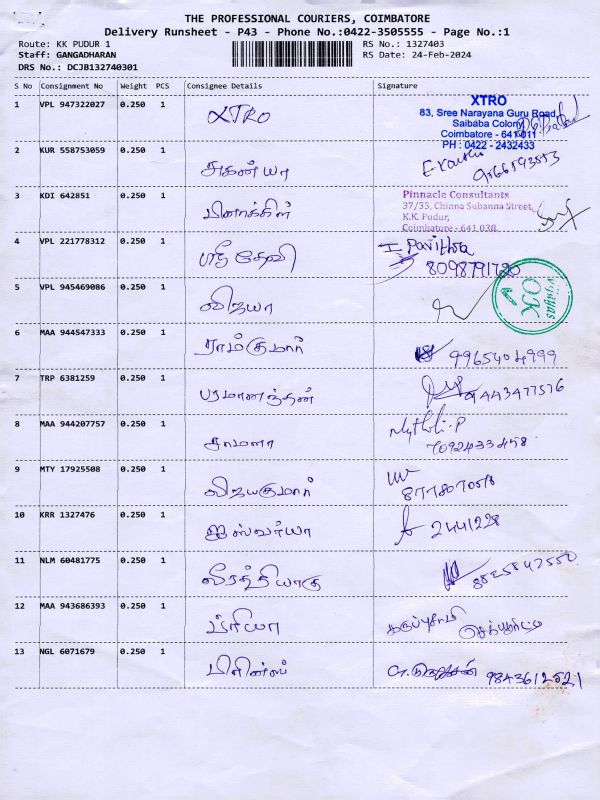 THE PROFESSIONAL COURIERS, COIMBATORE
Delivery Runsheet - P43 - Phone No.:0422-3505555 - Page No.:1
Route: KK PUDUR 1
RS No.: 1327403
Staff: GANGADHARAN
RS Date: 24-Feb-2024
DRS No.: DCJB132740301
S No Consignment No Weight PCS Consignee Details Signature
1 VPL 947322027 0.250 1 XTRO
XTRO
83, Sree Narayana Guru Road,
Saibaba Colony
Coimbatore - 641 011
PH : 0422 - 2432433
2 KUR 558753059 0.250 1 சுகன்யா
3 KDI 642851 0.250 1 பினாக்கிள்
Pinnacle Consultants
37/33, Chinna Subanna Street,
K.K. Pudur,
Coimbatore - 641 038.
4 VPL 221778312 0.250 1 ஸ்ரீதேவி
I Pavithra
8098791720
5 VPL 945469086 0.250 1 விஜயா
OK
6 MAA 944547333 0.250 1 ராம்குமார்
9965404999
7 TRP 6381259 0.250 1 பரமானந்தன்
9443477576
8 MAA 944207757 0.250 1 சாமளா
Mythili.P
7092433458
9 MTY 17925508 0.250 1 விஜயகுமார்
10 KRR 1327476 0.250 1 ஐஸ்வர்யா
2441228
11 NLM 60481775 0.250 1
8825842550
12 MAA 943686393 0.250 1 ப்ரியா
கருப்புசாமி
13 NGL 6071679 0.250 1
9843612521